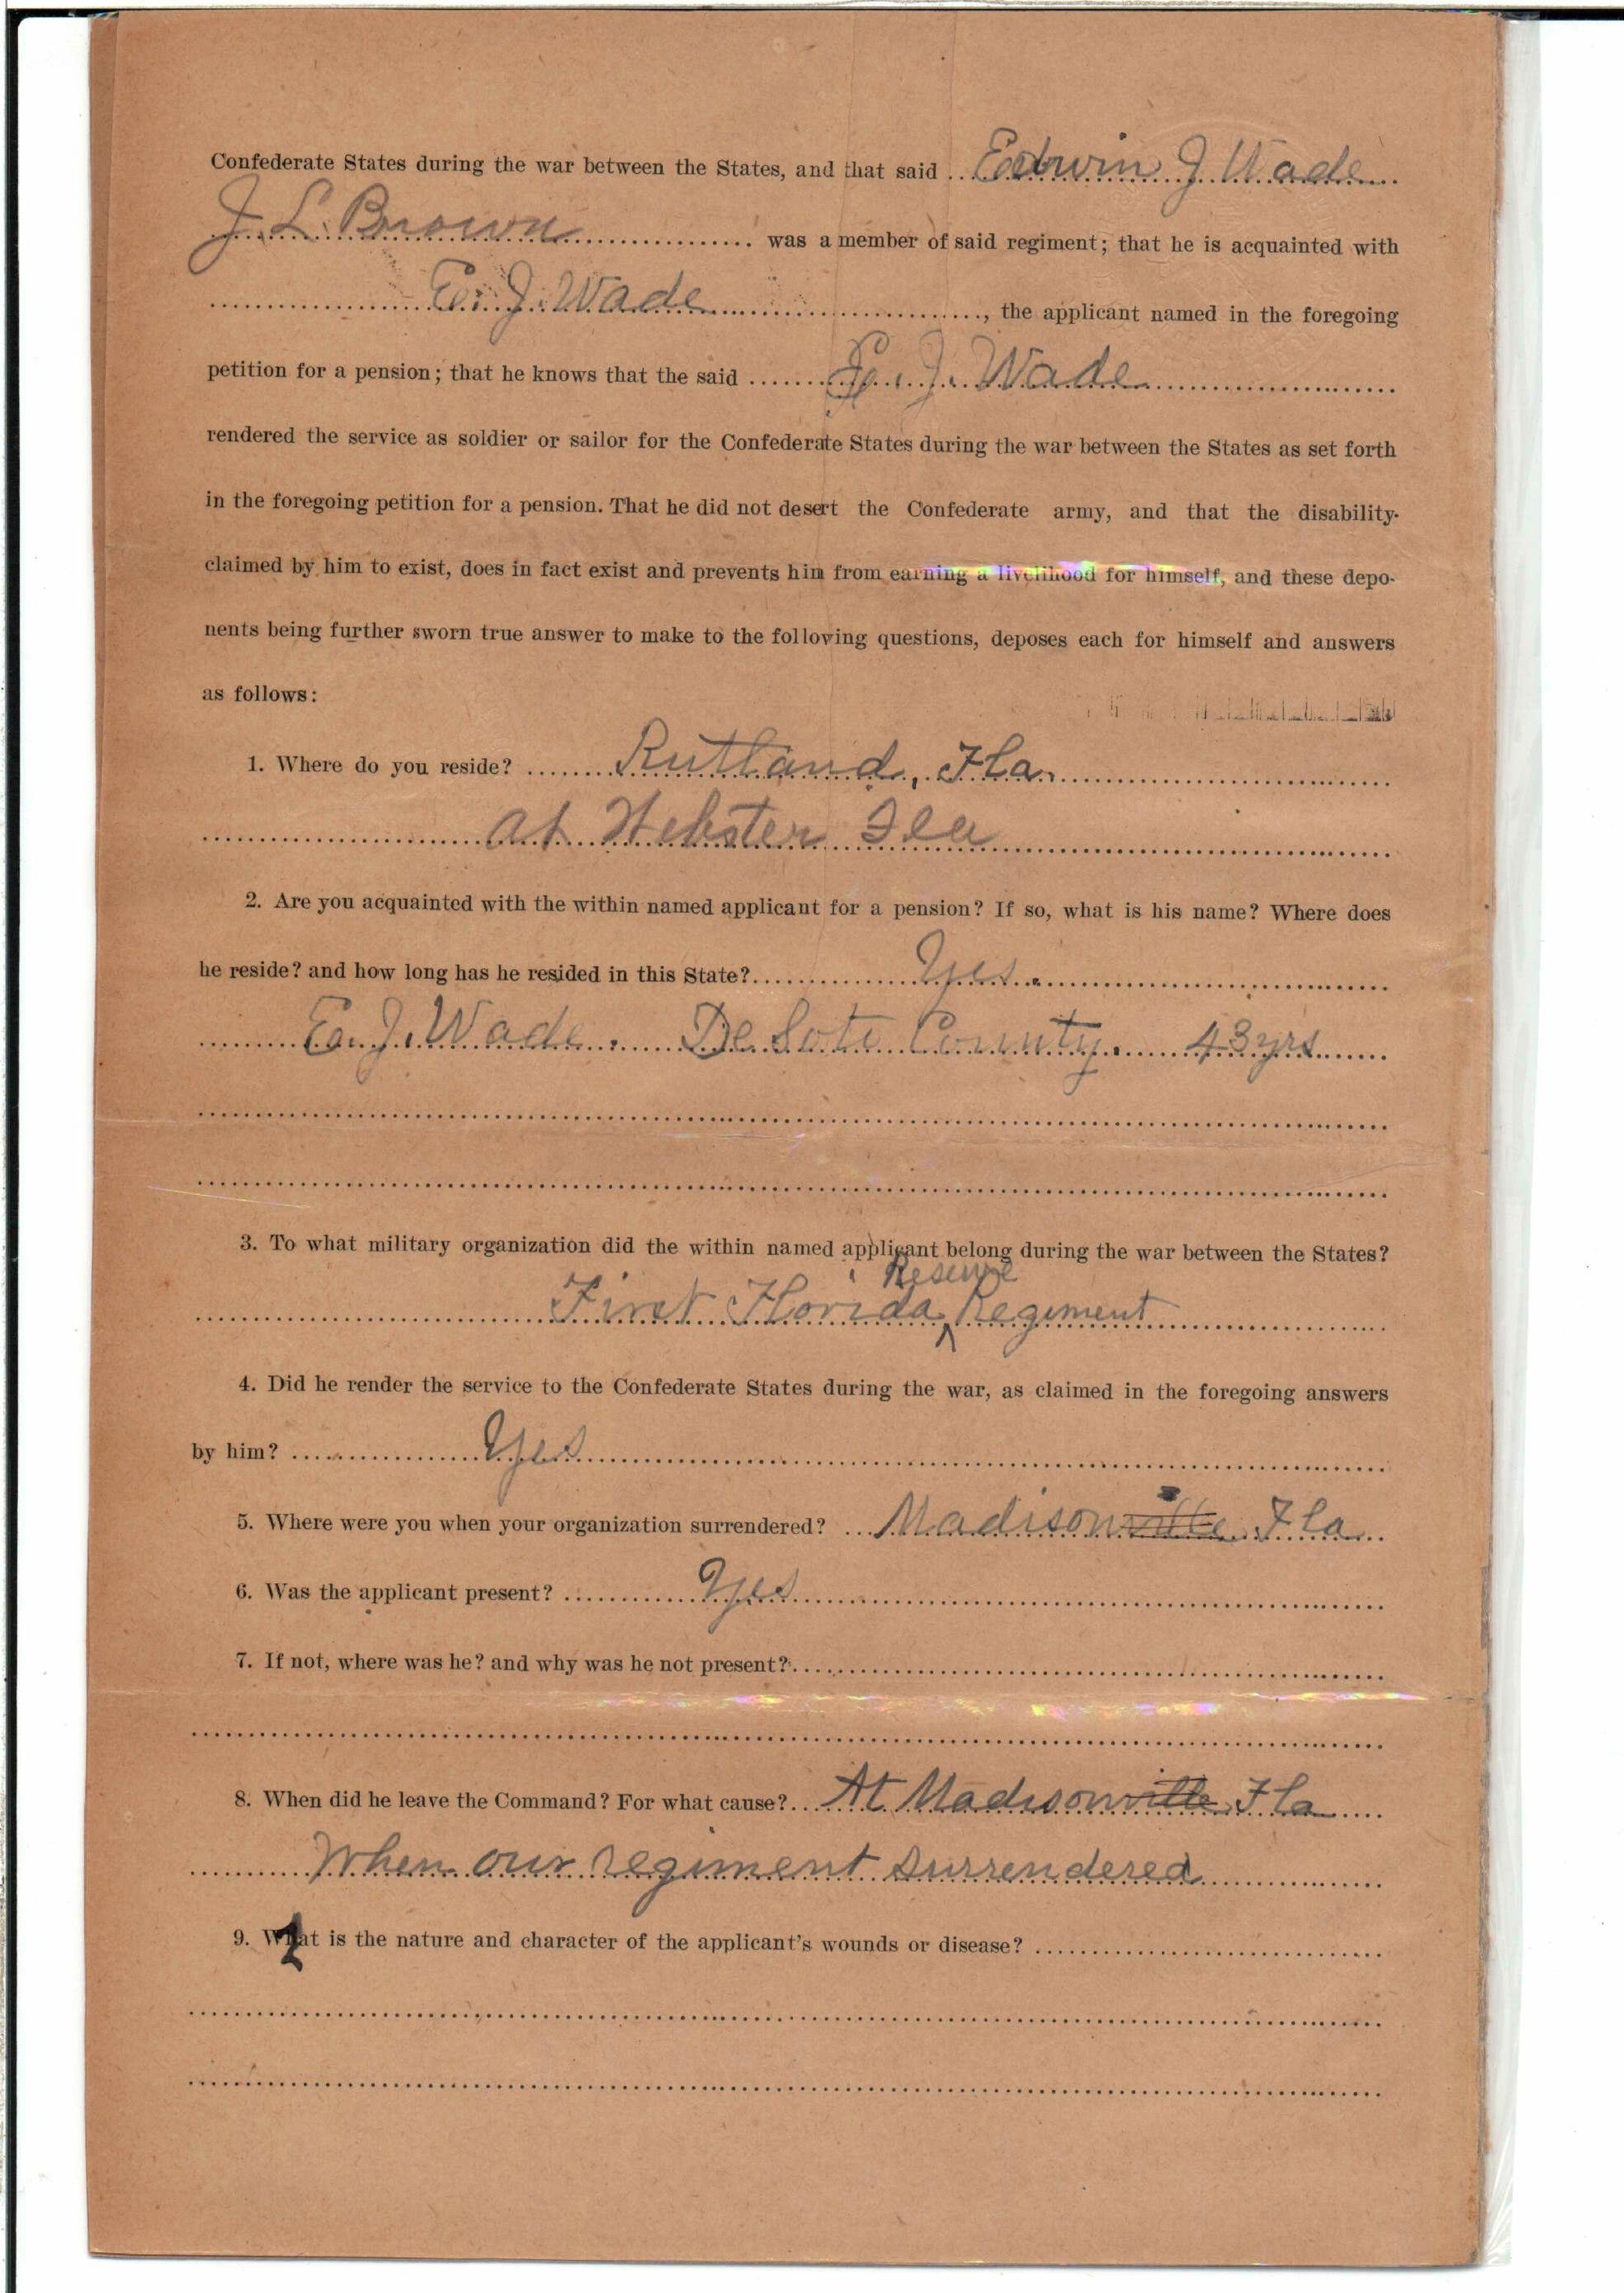 Confederate States during the war between the States, and that said Edwin J Wade
J. L. Brown was a member of said regiment; that he is acquainted with
E. J. Wade, the applicant named in the foregoing
petition for a pension; that he knows that the said E. J. Wade
rendered the service as soldier or sailor for the Confederate States during the war between the States as set forth
in the foregoing petition for a pension. That he did not desert the Confederate army, and that the disability
claimed by him to exist, does in fact exist and prevents him from earning a livelihood for himself, and these depo-
nents being further sworn true answer to make to the following questions, deposes each for himself and answers
as follows:
1. Where do you reside? Rutland, Fla.
at Webster Fla
2. Are you acquainted with the within named applicant for a pension? If so, what is his name? Where does
he reside? and how long has he resided in this State? Yes.
E. J. Wade. De Soto County. 43 yrs
3. To what military organization did the within named applicant belong during the war between the States?
First Florida Reserve Regiment
4. Did he render the service to the Confederate States during the war, as claimed in the foregoing answers
by him? Yes
5. Where were you when your organization surrendered? Madisonville Fla
6. Was the applicant present? Yes
7. If not, where was he? and why was he not present?
8. When did he leave the Command? For what cause? At Madisonville Fla
When our regiment surrendered
9. What is the nature and character of the applicant's wounds or disease?